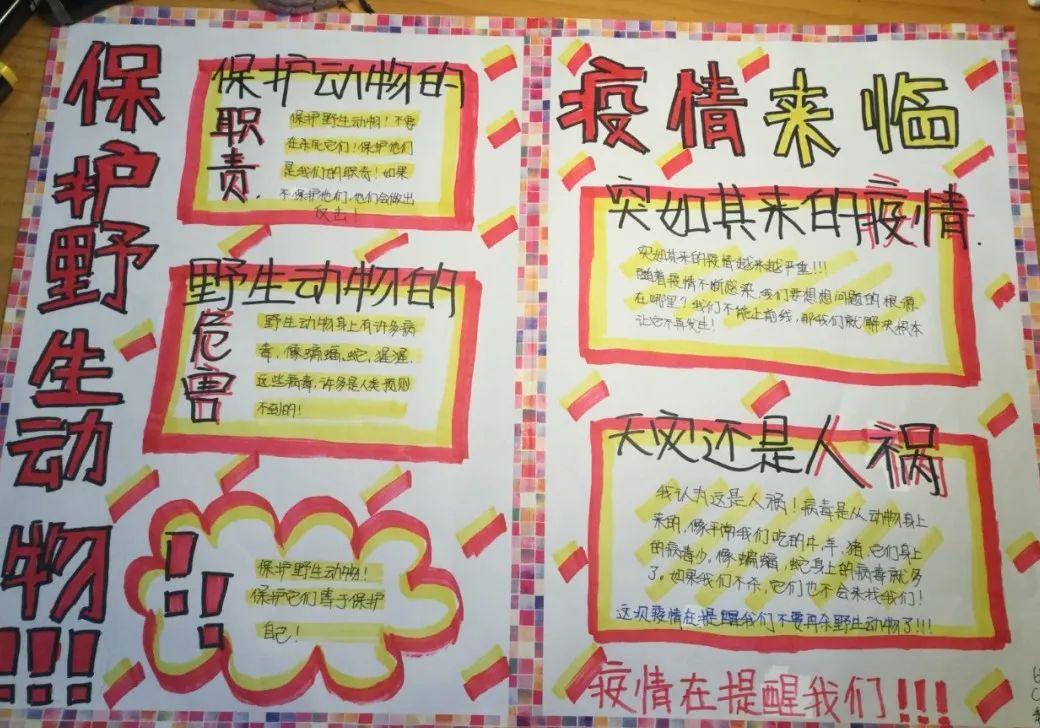 保护野生动物!!!
保护动物的
职责.
保护野生动物!不要
在杀死它们!保护他们
是我们的职责!如果
不保护他们,他们会做出
反击!
野生动物的
危害
野生动物身上有许多病
毒,像蝙蝠,蛇,猩猩.
这些病毒,许多是人类预测
不到的!
!!
保护野生动物!
保护它们等于保护
自己!
疫情来临
突如其来的疫情.
突如其来的疫情越来越严重!!!
随着疫情不断感染,我们要想想问题的根源
在哪里?我们不能上前线,那我们就解决根本
让它不再发生!
天灾还是人祸
我认为这是人祸!病毒是从动物身上
来的,像平常我们吃的牛,羊,猪,它们身上
的病毒少,像蝙蝠,蛇身上的病毒就多
了。如果我们不杀,它们也不会来找我们!
这次疫情在提醒我们不要再杀野生动物了!!!
疫情在提醒我们!!!